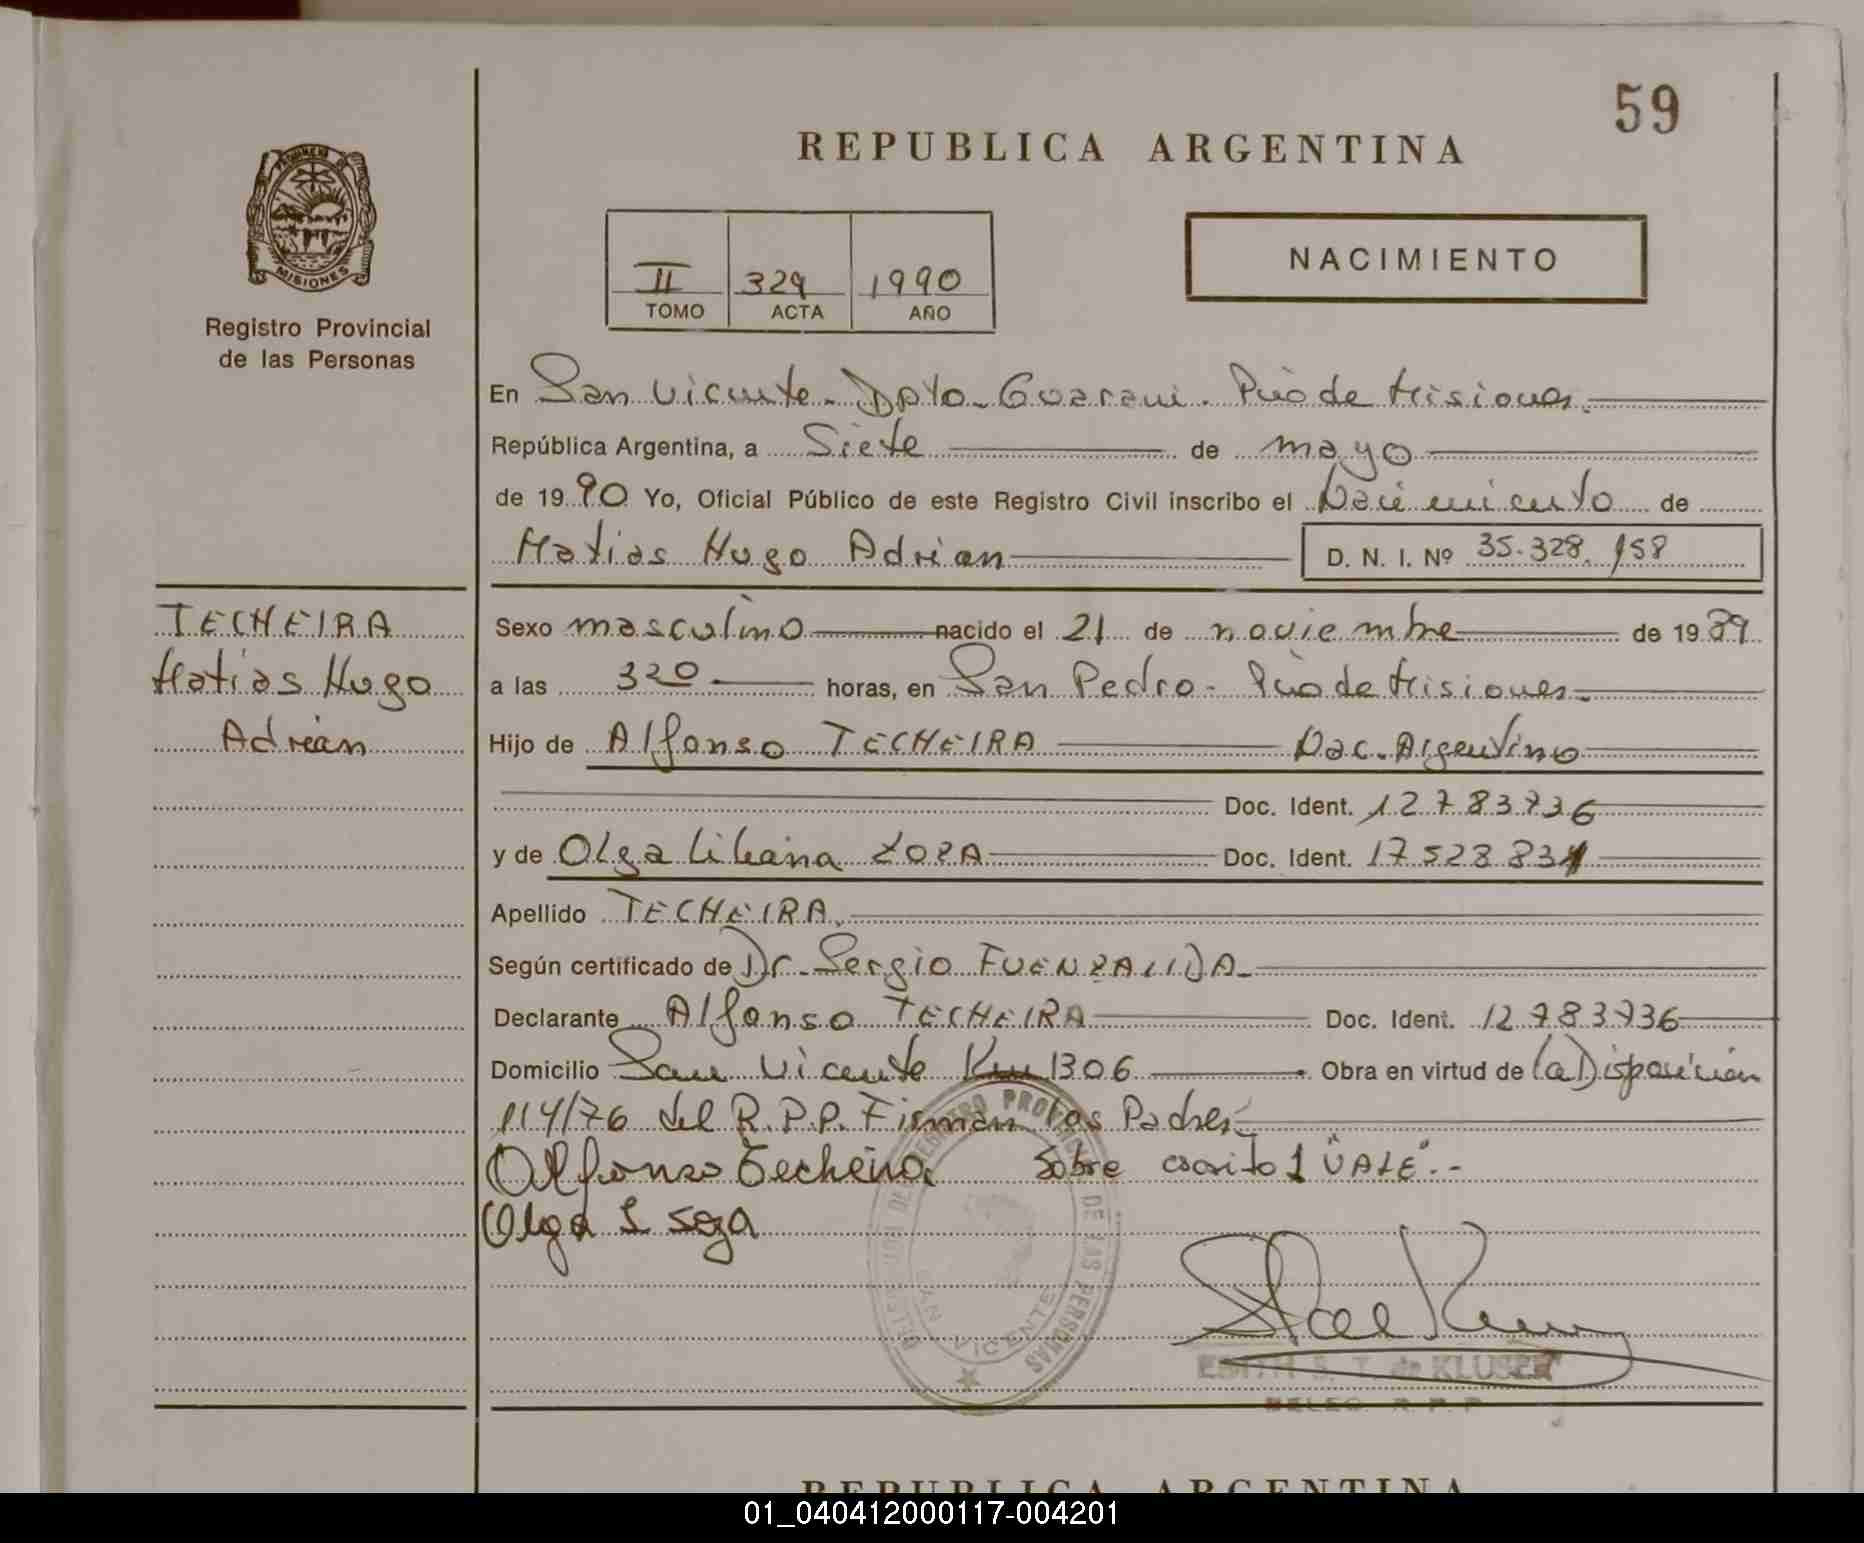 59
REPUBLICA ARGENTINA
PROVINCIA DE
MISIONES
Registro Provincial
de las Personas
II 329 1990
TOMO ACTA AÑO
NACIMIENTO
En San Vicente - Dpto - Guarani. Pcia de Misiones.
República Argentina, a Siete de mayo
de 1990 Yo, Oficial Público de este Registro Civil inscribo el Nacimiento de
Matias Hugo Adrian D. N. I. Nº 35.328.158
TECHEIRA
Matias Hugo
Adrian
Sexo masculino nacido el 21 de noviembre de 1989
a las 320 horas, en San Pedro - Pcia de Misiones.
Hijo de Alfonso TECHEIRA Nac. Argentino
Doc. Ident. 12783736
y de Olga Liliana SOZA Doc. Ident. 17528831
Apellido TECHEIRA.
Según certificado de Dr. Sergio FUENZALIDA
Declarante Alfonso TECHEIRA Doc. Ident. 12783736
Domicilio San Vicente Km 1306 Obra en virtud de la Disposición
114/76 del R.P.P. Firman los Padres
Alfonso Techeira Sobre escrito 1 "VALE".-
Olga L soza
DELEGACION DEL REGISTRO PROVINCIAL DE LAS PERSONAS
SAN VICENTE
EDITH S. T. de KLUSER
DELEG. R. P. P.
REPUBLICA ARGENTINA
01_040412000117-004201